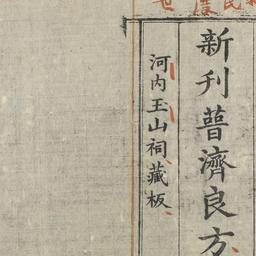 新刋普濟良方
河内玉山祠藏板